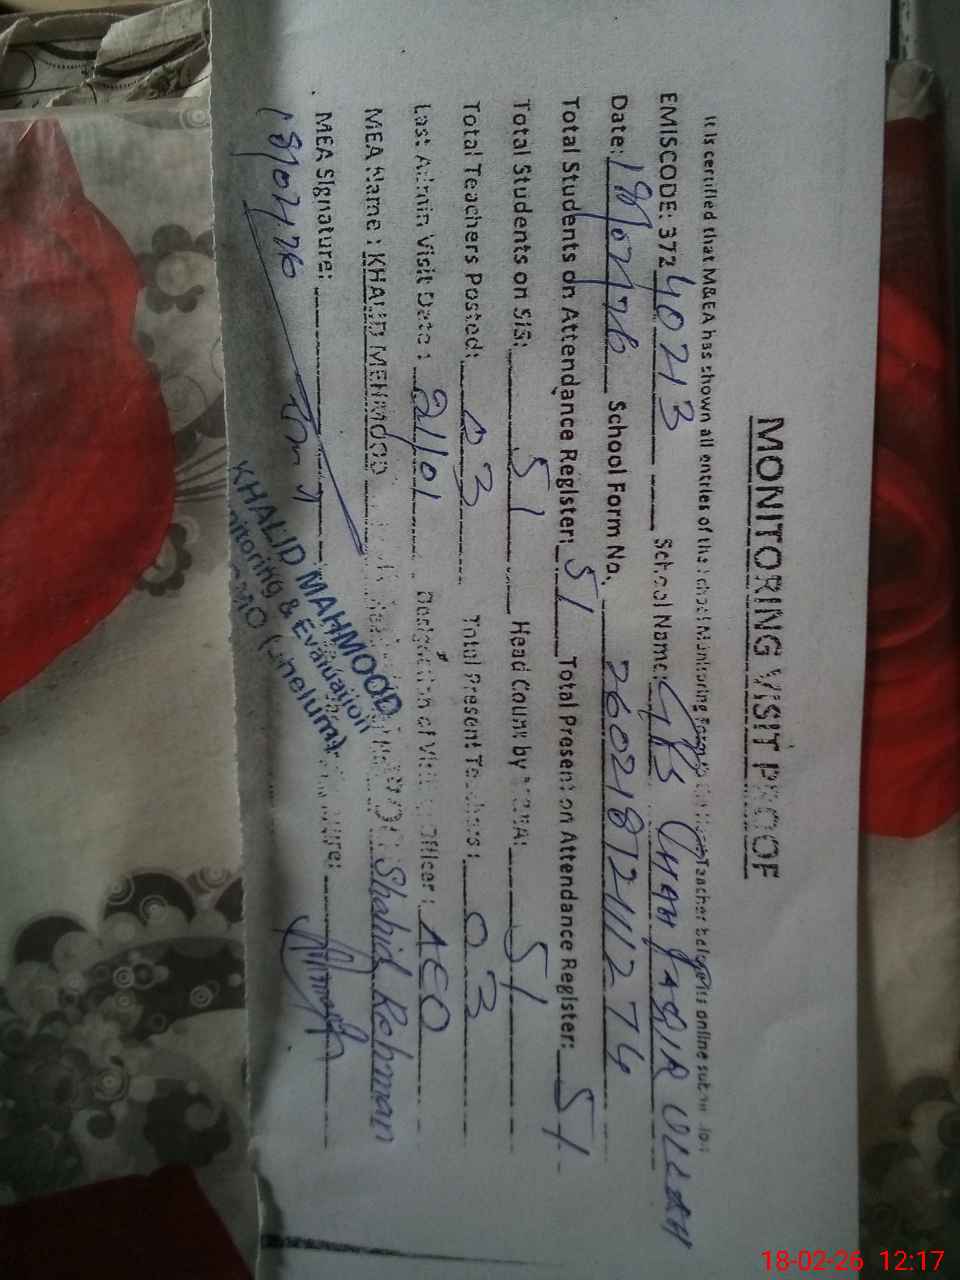 MONITORING VISIT PROOF
It is certified that M&EA has shown all entries of the School Monitoring Form to the Head Teacher before its online submission
EMISCODE: 37240213 School Name: GPS CHAH YASIR ULLAH
Date: 18/02/26 School Form No. 26021812111274
Total Students on Attendance Register: 51 Total Present on Attendance Register: 51
Total Students on SIS: 51 Head Count by MEA: 51
Total Teachers Posted: 03 Total Present Teachers: 03
Last Admin Visit Date: 21/01 Designation of Visiting Officer: AEO
MEA Name: KHALID MEHMOOD Shahid Rehman
MEA Signature:
18/02/26
KHALID MAHMOOD
Monitoring & Evaluation
(Jhelum)
18-02-26 12:17